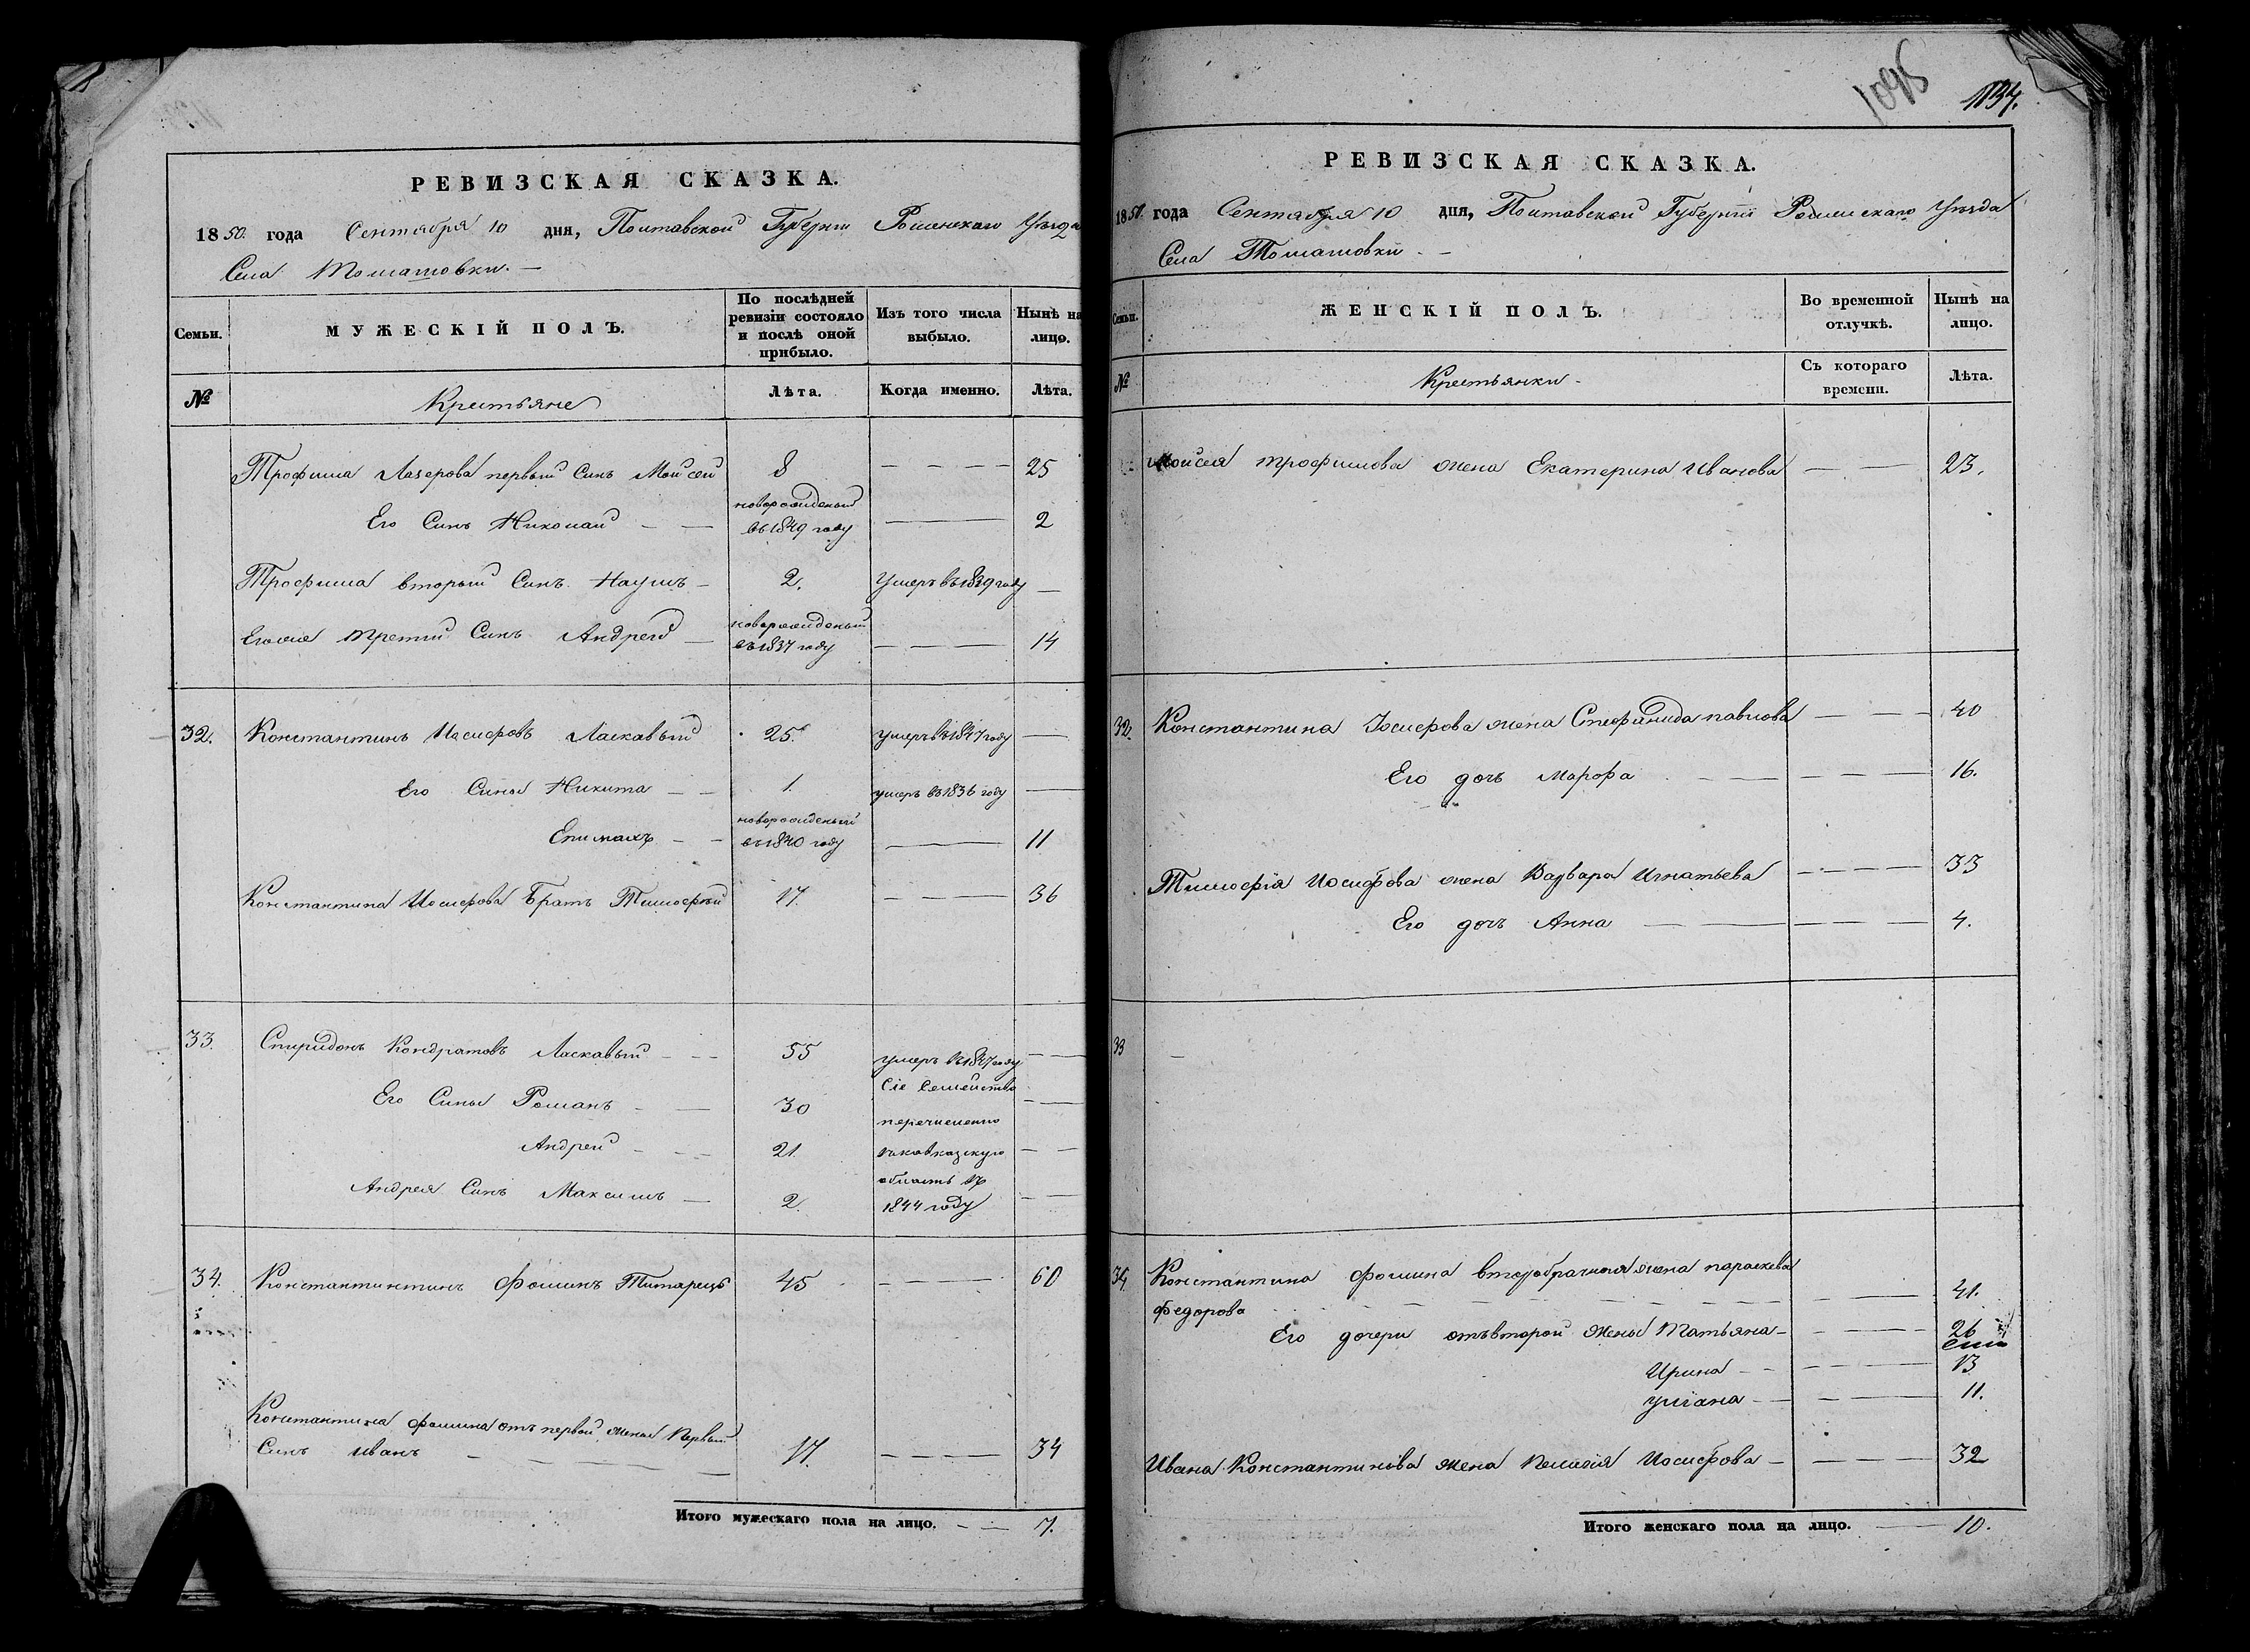 РЕВИЗСКАЯ СКАЗКА.
1850. года Сентября 10 дня, Полтавской Губерніи Роменскаго Уѣзда
Села Томашовки. —
Семьи.
МУЖЕСКІЙ ПОЛЪ.
По послѣдней ревизіи состояло и послѣ оной прибыло.
Изъ того числа выбыло.
Нынѣ на лицо.
№
Крестьяне
Лѣта.
Когда именно.
Лѣта.
Трофима Лазерова первый Синъ Мойсей 8 — — — — 25
Его Синъ Николай — — новорожденый въ 1849 году — — — 2
Трофима вторый Синъ Наумъ — 2. Умеръ въ 1839 году —
Егоже третий Синъ Андрей — новорожденый въ 1837 году — — — — 14
32. Константинъ Иосифовъ Ласкавый 25. умеръ въ 1847 году —
Его Сины Никита — — 1. умеръ въ 1836 году —
Епимахъ — — новорожденый въ 1840 году — — 11
Константина Иосифова Братъ Тимофѣй 17. — — — — 36
33. Спиридонъ Кондратовъ Ласкавый — — — 55 умеръ въ 1847 году — —
Его Сины Романъ — — 30 Сіе Семейство — —
Андрей — — — 21. перечисленно въ кавказкую — —
Андрея Синъ Максимъ — 2. область въ 1844 году — —
34. Константинтинъ Фоминъ Титарець 45 — — — — 60
Константина Фомина отъ первой жены Первый
Синъ иванъ — — — — — 17. — — — — 34
Итого мужескаго пола на лицо. — — 7.
1095
1134.
РЕВИЗСКАЯ СКАЗКА.
1850. года Сентября 10 дня, Полтавской Губерніи Роменскаго Уѣзда
Села Томашовки. —
Семьи.
ЖЕНСКІЙ ПОЛЪ.
Во временной отлучкѣ.
Нынѣ на лицо.
№
Крестьянки —
Съ котораго времени.
Лѣта.
Мойсея трофимова жена Екатерина Иванова — — 23.
32. Константина Іосифова жена Стефанида павлова — — — 40
Его дочь Марфа — — — — — 16.
Тимофія Иосифова жена Варвара Игнатьева — — — — 33
Его дочь Анна — — — — — 4.
33
34. Константина Фомина второбрачная жена параскева
Федорова — — — — — — — — 41.
Его дочери отъ второй жены Татьяна — — — — 26
Ирина — — — — — 13
уліана — — — — — 11.
Ивана Константинова жена Пелагія Иосифова — — — — 32
Итого женскаго пола на лицо. — 10.